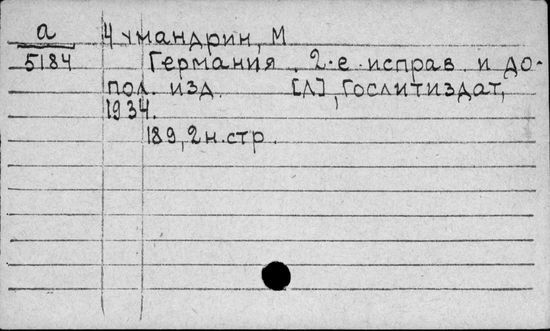 а
5184
Чумандрин, М
Германия. 2-е исправ. и до-
пол. изд. [Л], Гослитиздат,
1934.
189, 2 н. стр.